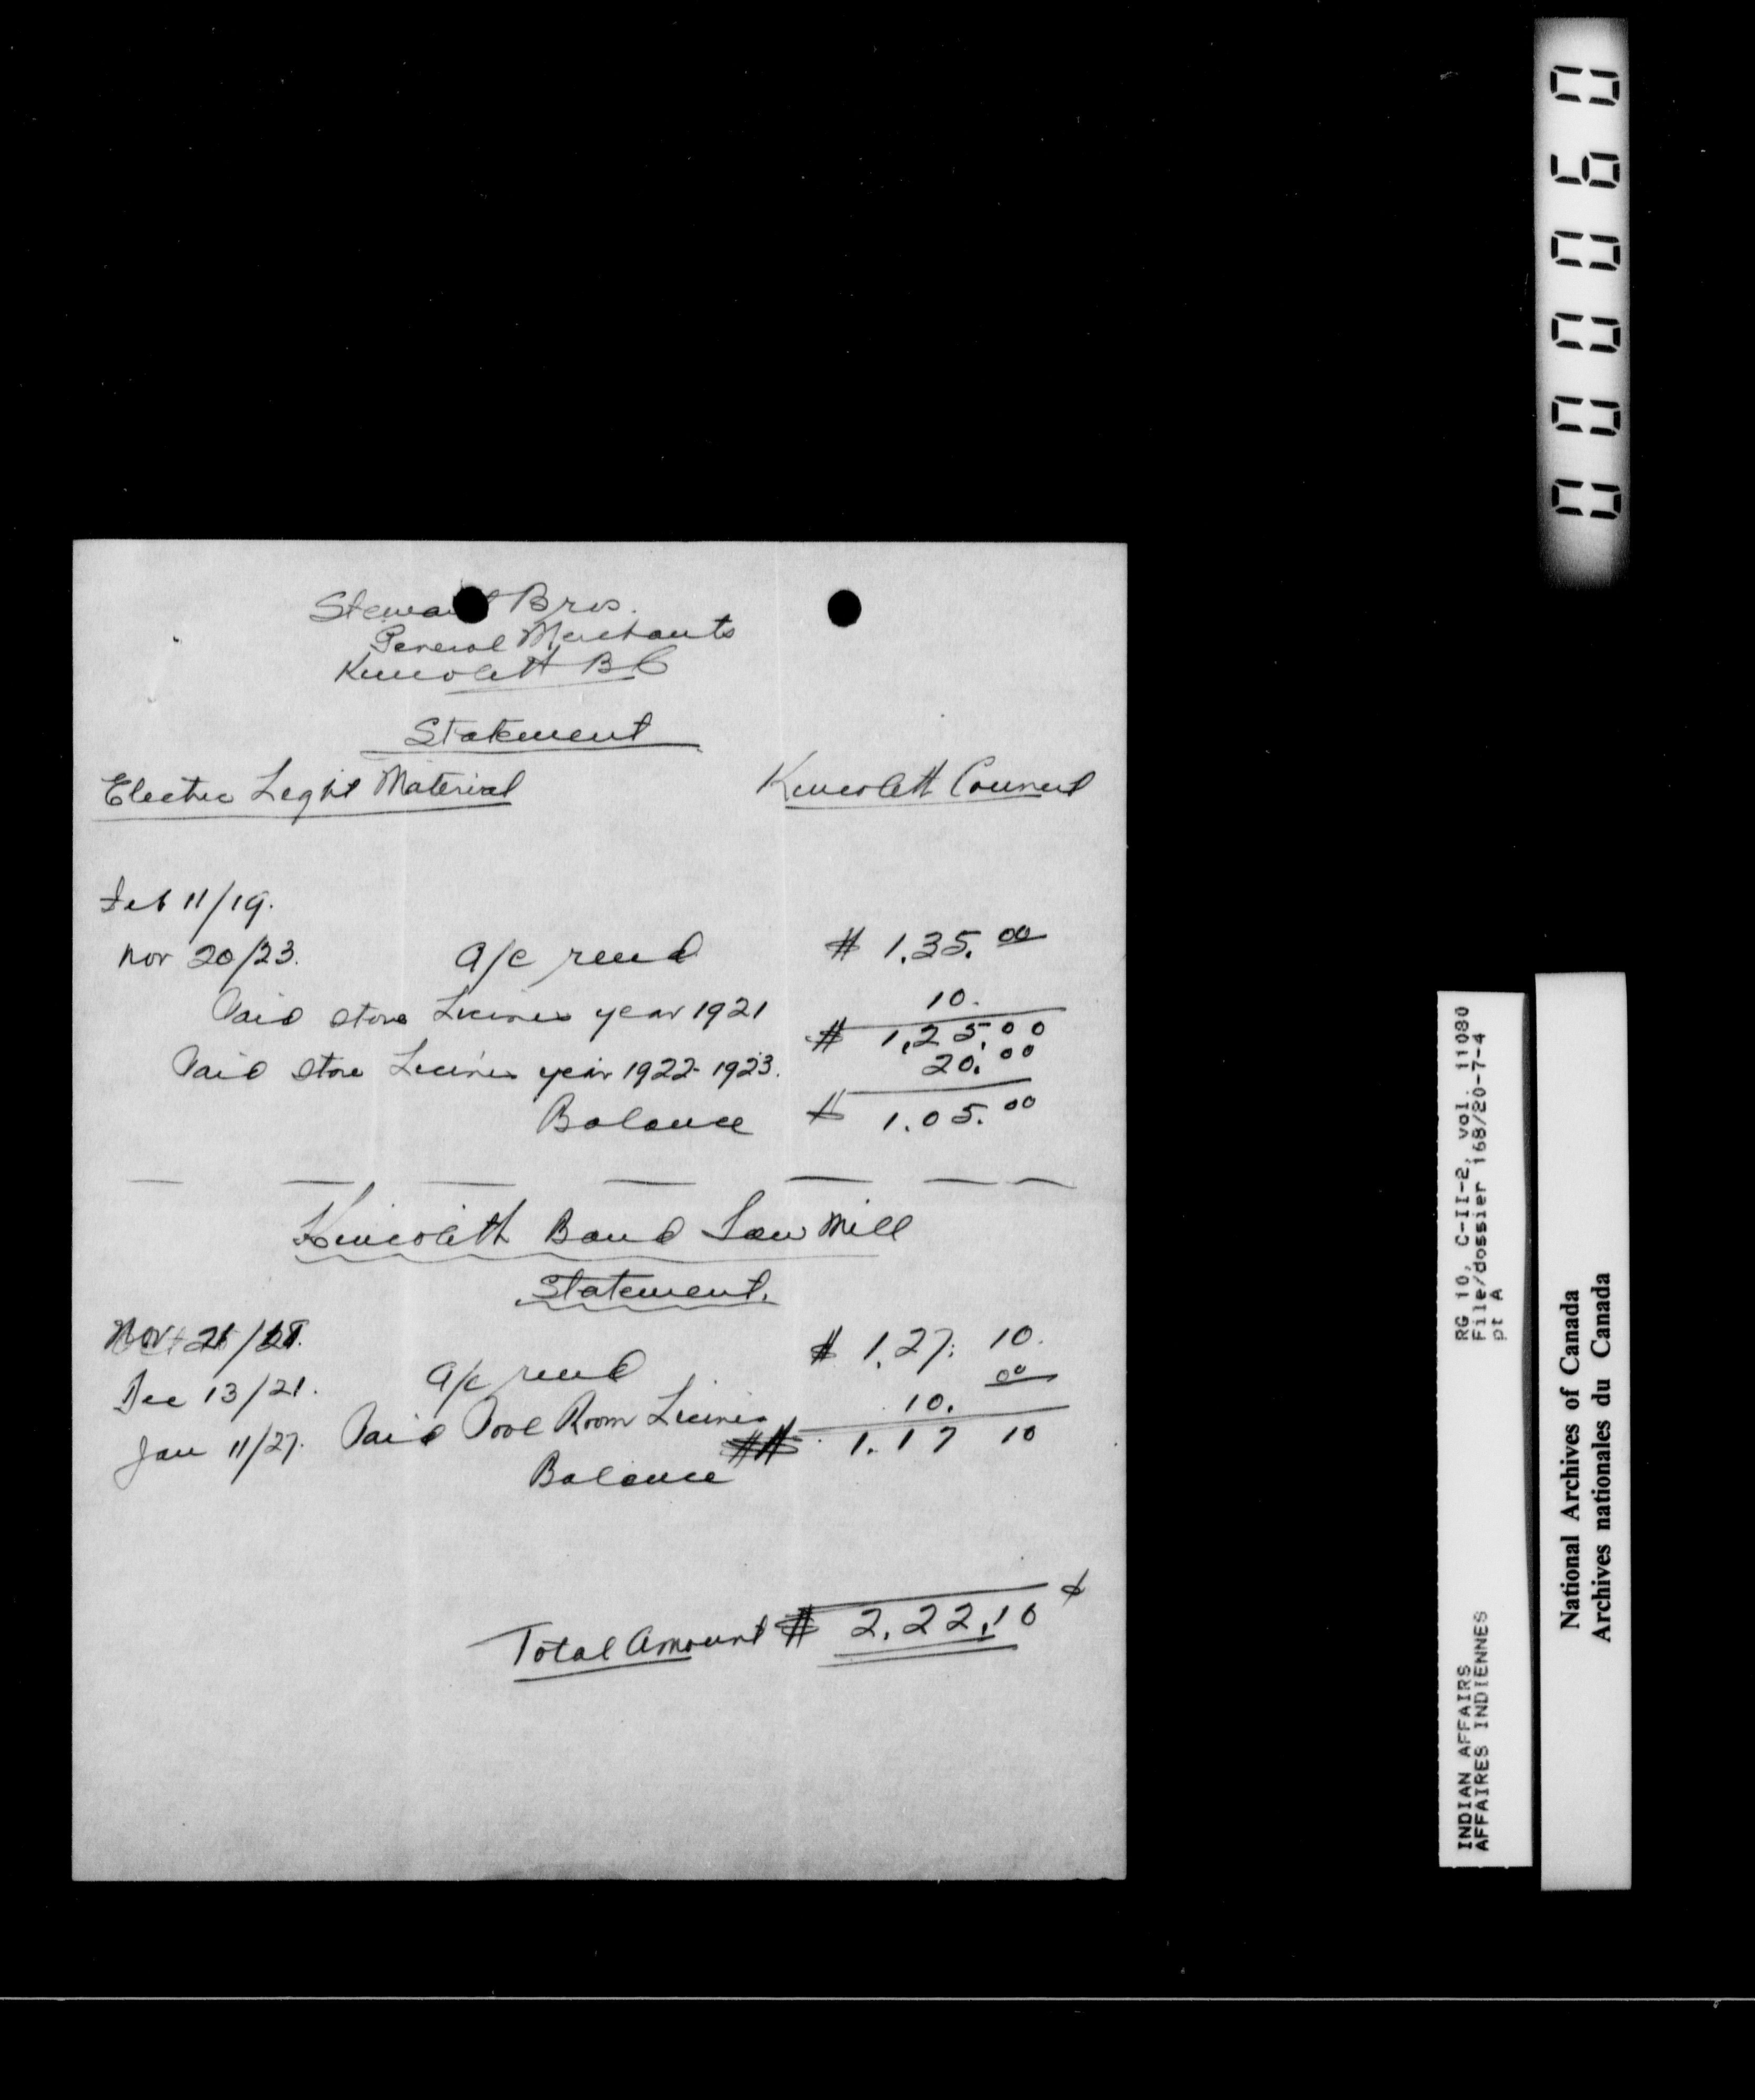 Stewart Bros.
General Merchants
Kincolith BC
Statement
Electric Light Material
Kincolith Council
Feb 11/19.
Nov 20/23. a/c rend $ 1.35.00
Paid Store Licines year 1921 10.
$ 1,25.00
Paid Store Licines year 1922-1923. 20.00
Balance $ 1.05.00
Kincolith Band Saw Mill
Statement.
$ 1.27. 10.
Dec 13/21. a/c rend 00
Jan 11/27. Paid Pool Room Licines 10.
Balance $ 1.17 10
Total Amount $ 2.22.10 ¢
000060
RG 10, C-II-2, vol. 11080
File/dossier 168/20-7-4
pt A
INDIAN AFFAIRS
AFFAIRES INDIENNES
National Archives of Canada
Archives nationales du Canada